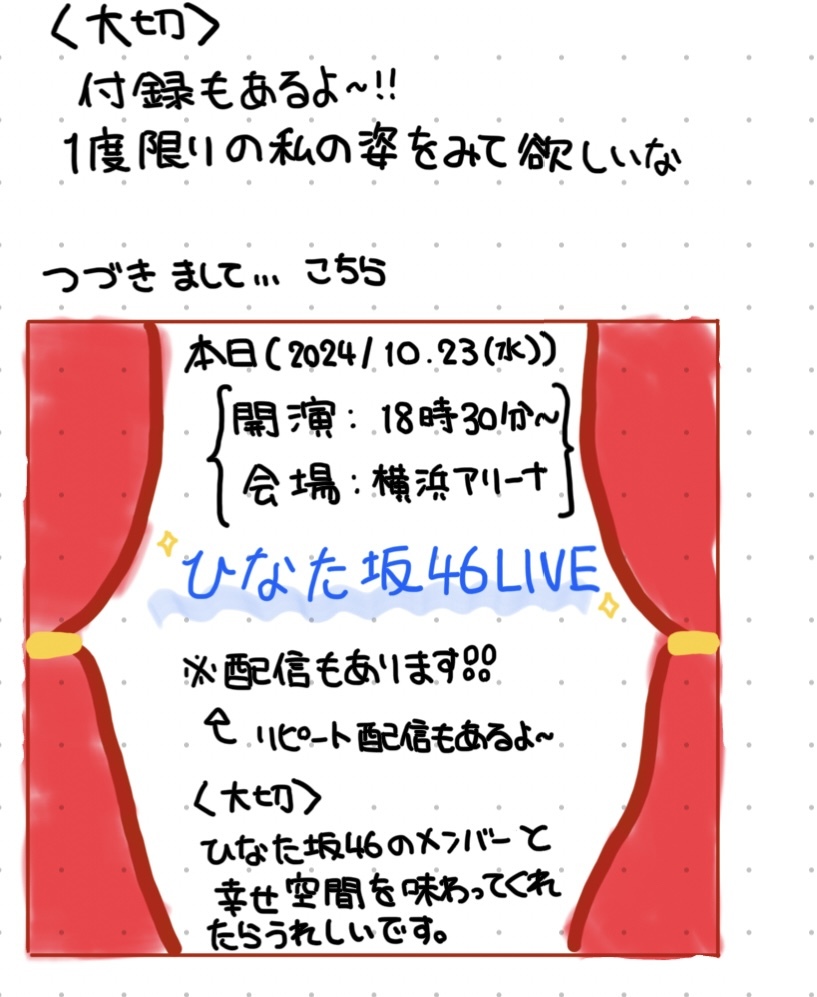 〈大切〉
付録もあるよ~!!
1度限りの私の姿をみて欲しいな
つづきまして... こちら
本日(2024/10.23(水))
開演: 18時30分~
会場: 横浜アリーナ
ひなた坂46LIVE
※配信もあります!!
リピート配信もあるよ~
〈大切〉
ひなた坂46のメンバーと
幸せ空間を味わってくれ
たらうれしいです。